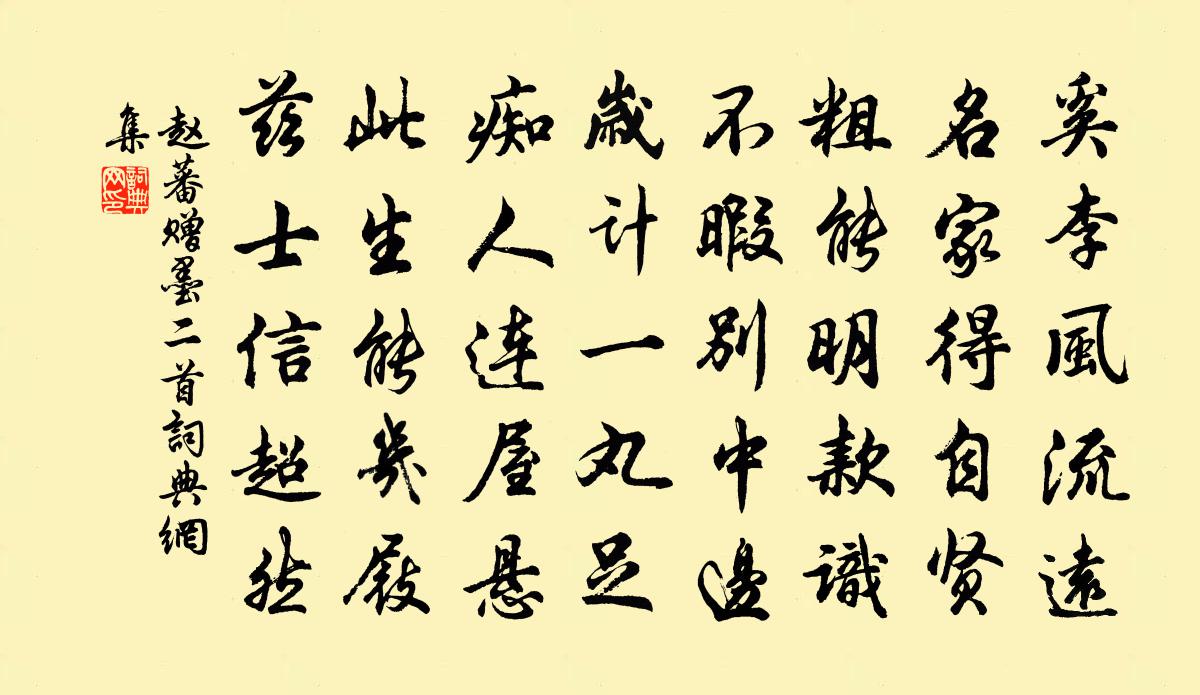 奚李風流遠
名家得自贤
粗能明款識
不暇別中邊
歲计一丸足
痴人连屋悬
此生能幾屐
茲士信超然
赵蕃赠墨二首詞典網
集
詞典
网印